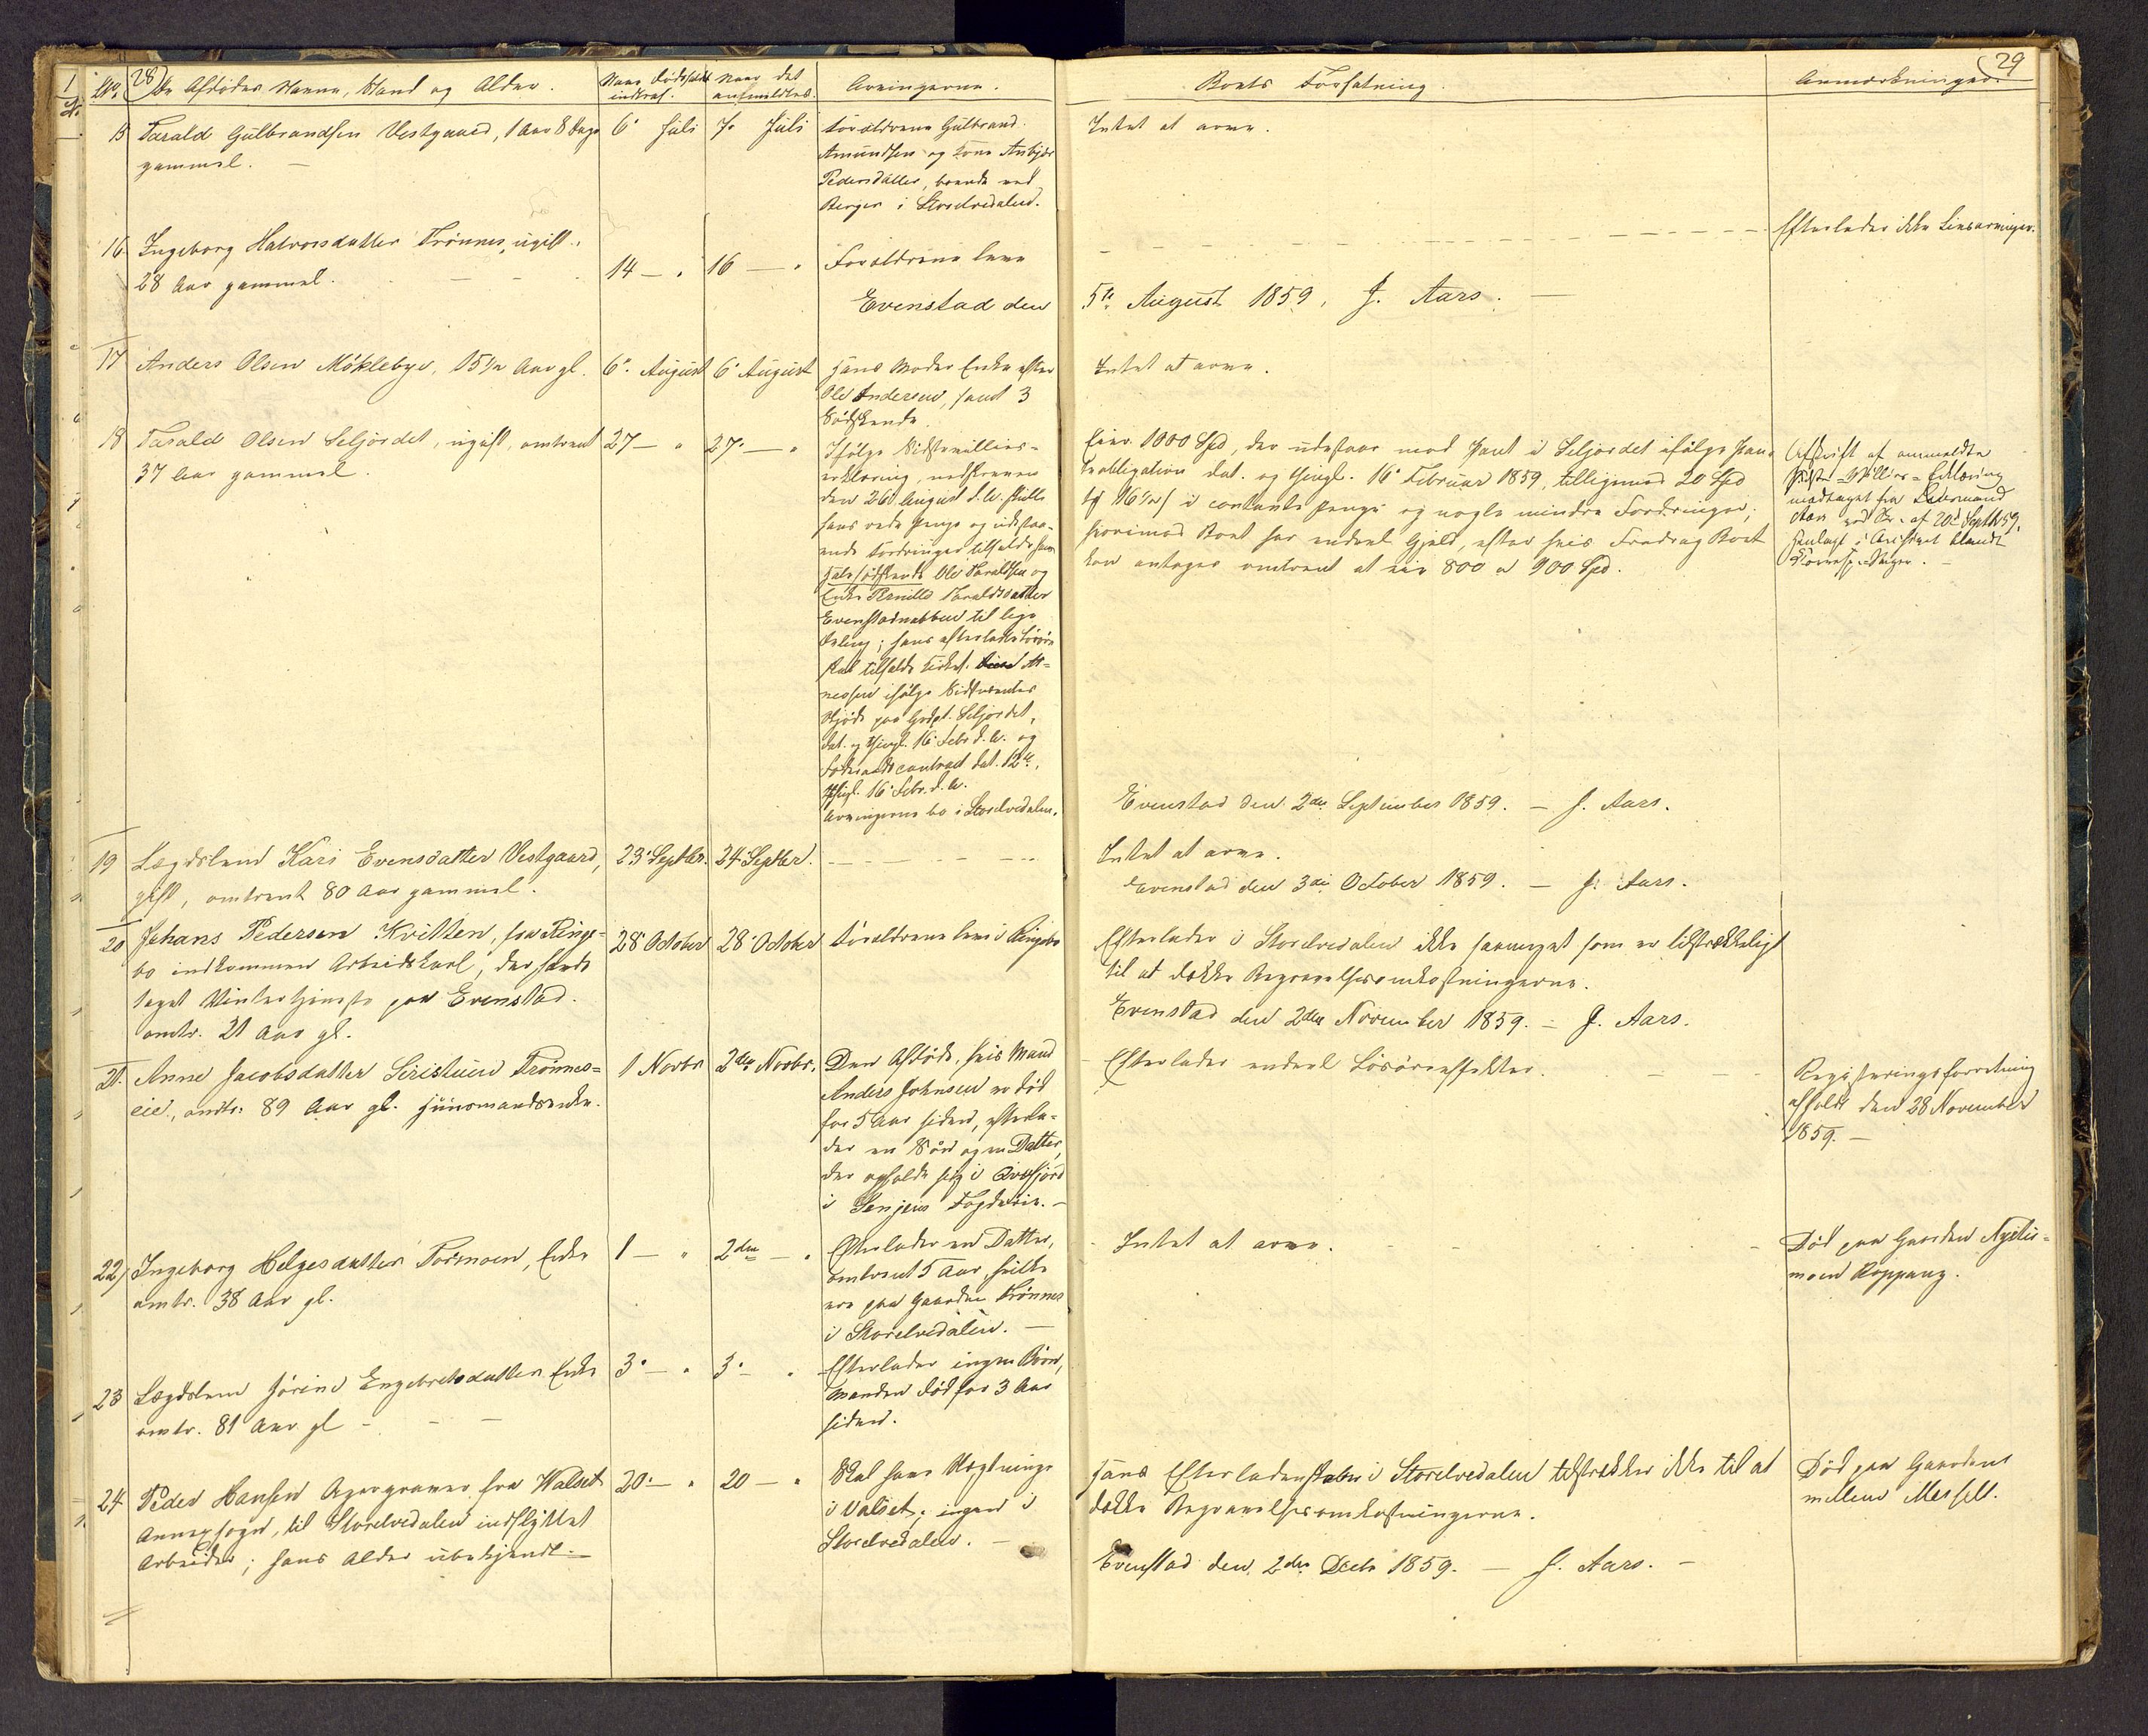 28
No.
De Afdødes Navne, Stand og Alder.
Naar Dødsfaldet indtraf.
Naar det anmeldtes.
Arvingerne.
15 Tarald Gulbrandsen Vestgaard, 1 Aar 8 Dage
gammel. —
6' Juli
7. Juli
Forældrene Gulbrand
Amundsen og Kone Anbjør
Pedersdatter, boende ved
Berger i Storelvedalen.
16 Ingeborg Halvorsdatter Trønnes, ugift.
28 Aar gammel.
14 — "
16 — "
Forældrene leve
Evenstad den
17 Anders Olsen Møklebye, 15 1/2 Aar gl.
6. August
6 August
hans Moder Enke efter
Ole Andersen, samt 3
Sødskende.
18 Tarald Olsen Seljordet, ugift, omtrent
37 Aar gammel.
27 — "
27 — "
Ifølge Sidstevillies-
erklæring, nedskreven
den 26 August d. A. skulle
hans rede Penge og udestaa-
ende Fordringer tilfalde hans
Halvsødskende Ole Taraldsen og
Enke Pernille Taraldsdatter
Evenstadnabben til lige
Deling; hans efterladte Løsøre
skal tilfalde
nessen ifølge
Skjøde paa Godset Seljordet,
dat. og thingl. 16 Febr d. A. og
contract dat. 12te,
thingl. 16 Febr. d. A.
Arvingerne bo i Storelvedalen.
19 Lægdslem Kari Evensdatter Vestgaard,
gift, omtrent 80 Aar gammel.
23 Septbr.
24 Septbr.
20 Johans Pedersen Kvitten, fra Ringe-
bo indkommen Arbeidskarl, der havde
taget Vintertjeneste paa Evenstad.
omtr. 21 Aar gl.
28 October
28 October
Forældrene leve i Ringebo
21. Anne Jacobsdatter Siristuen Trønnes-
eie, omtr. 89 Aar gl. Huusmandsenke.
1 Novbr
2den Novbr.
Den Afdøde, hvis Mand
Anders Johnsen er død
for 5 Aar siden, efterla-
der en Søn og en Datter,
der opholde sig i Qvæfjord
i Senjens Fogderie. —
22/ Ingeborg Helgesdatter Tormoen, Enke
omtr. 38 Aar gl.
1 — "
2den — "
Efterlader en Datter,
omtrent 5 Aar, hvilke
ere paa Gaarden Trønnes
i Storelvedalen. —
23 Lægdslem Jørine Engebretsdatter Enke
omtr. 81 Aar gl —
3. — "
3. — "
Efterlader ingen Børn,
Manden død for 3 Aar
siden.
24 Peder Hansen Agergraver fra Walset
Annexsogn, til Storelvedalen indflyttet
Arbeider; hans Alder ubekjendt. —
20. — "
20 — "
Skal have Slægtninge
i Valset; ingen i
Storelvedalen. —
29
Boets Forfatning.
Anmærkninger.
Intet at arve.
Efterlader ikke Livsarvinger.
5te August 1859. J. Aars. —
Intet at arve.
Eier 1000 Spd, der udestaar mod Pant i Seljordet ifølge Pan-
teobligation dat. og thingl. 16 Februar 1859, tilligemed 20 Spd
16 1/2 s i contante Penge og nogle mindre Fordringer;
hvorimod Boet har endeel Gjeld, efter hvis Fradrag Boet
kan antages omtrent at eie 800 a 900 Spd.
Afskrift af anmeldte
Sidste-Willies-Erklæring
modtaget fra Lensmand
Aars ved Br. af 20de Septbr 59,
henlagt i Archivet blandt
Evenstad den 2den September 1859. — J. Aars.
Intet at arve.
Evenstad den 3die October 1859. — J. Aars.
Efterlader i Storelvedalen ikke saameget som er tilstrækkeligt
til at dække Begravelsesomkostningerne.
Evenstad den 2den November 1859. — J. Aars.
Efterlader endeel Løsøreeffekter.
Registreringsforretning
afholdt den 28 November
1859. —
Intet at arve.
Død paa Gaarden Nysti-
moen Koppang.
Hans Efterladenskaber i Storelvedalen tilstrækker ikke til at
dække Begravelsesomkostningerne.
Død paa Gaarden
mellem Messelt.
Evenstad den 2den Decbr 1859. — J. Aars. —